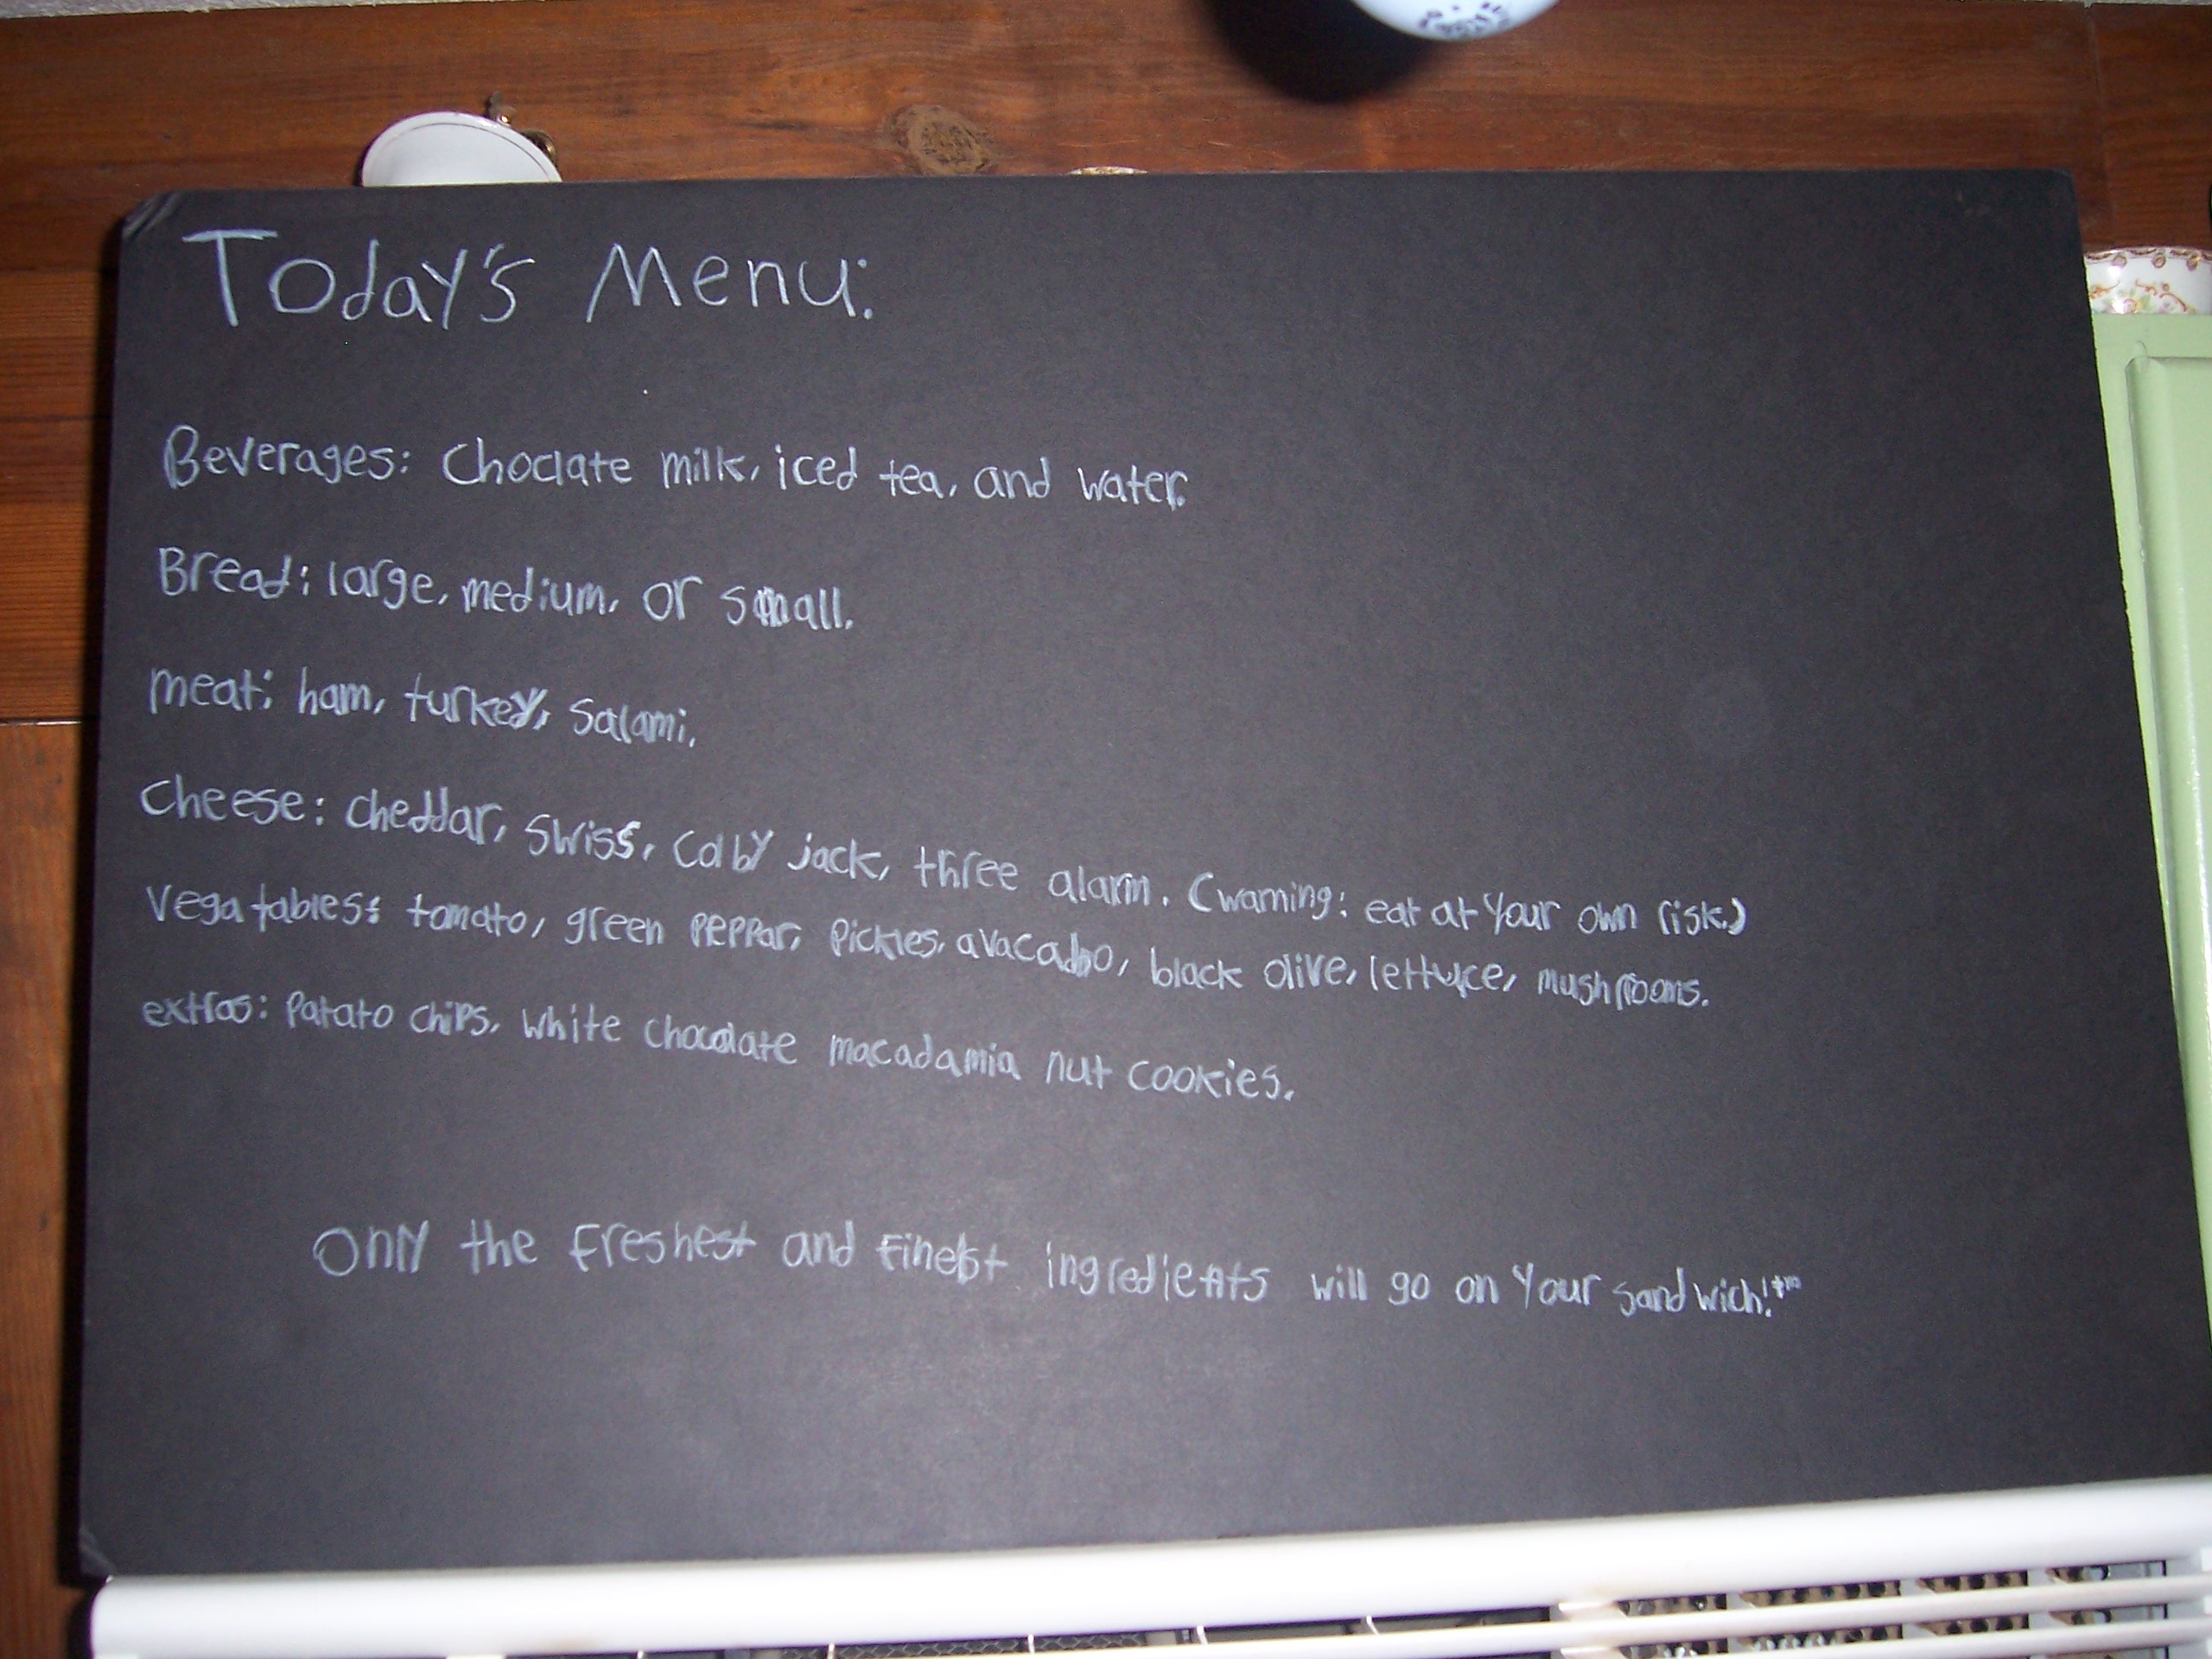 Today's Menu:
Beverages: Choclate milk, iced tea, and water.
Bread: large, medium, or small.
meat: ham, turkey, salami.
Cheese: cheddar, swiss, colby jack, three alarm. (warning: eat at your own risk.)
Vegatables: tomato, green peppar, pickles, avacado, black olive, lettuce, mushrooms.
extras: Patato chips, white chocolate macadamia nut cookies.
Only the freshest and finest ingredients will go on your sandwich!™